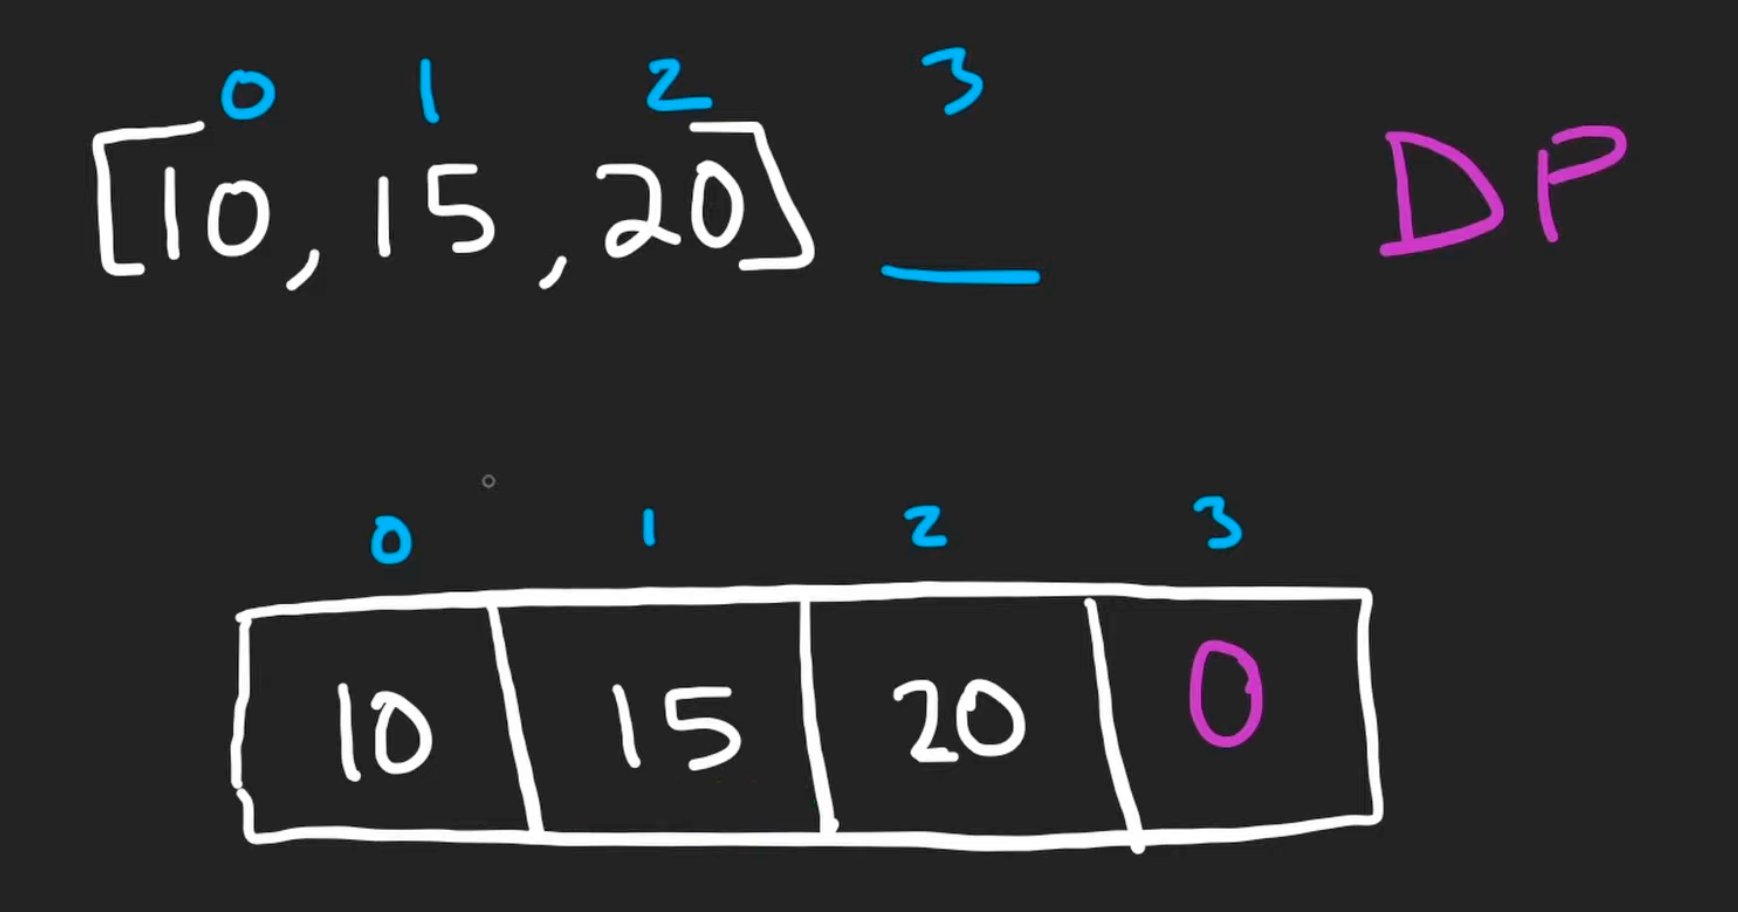 0 1 2 3
[10, 15, 20] DP
0 1 2 3
10 15 20 0